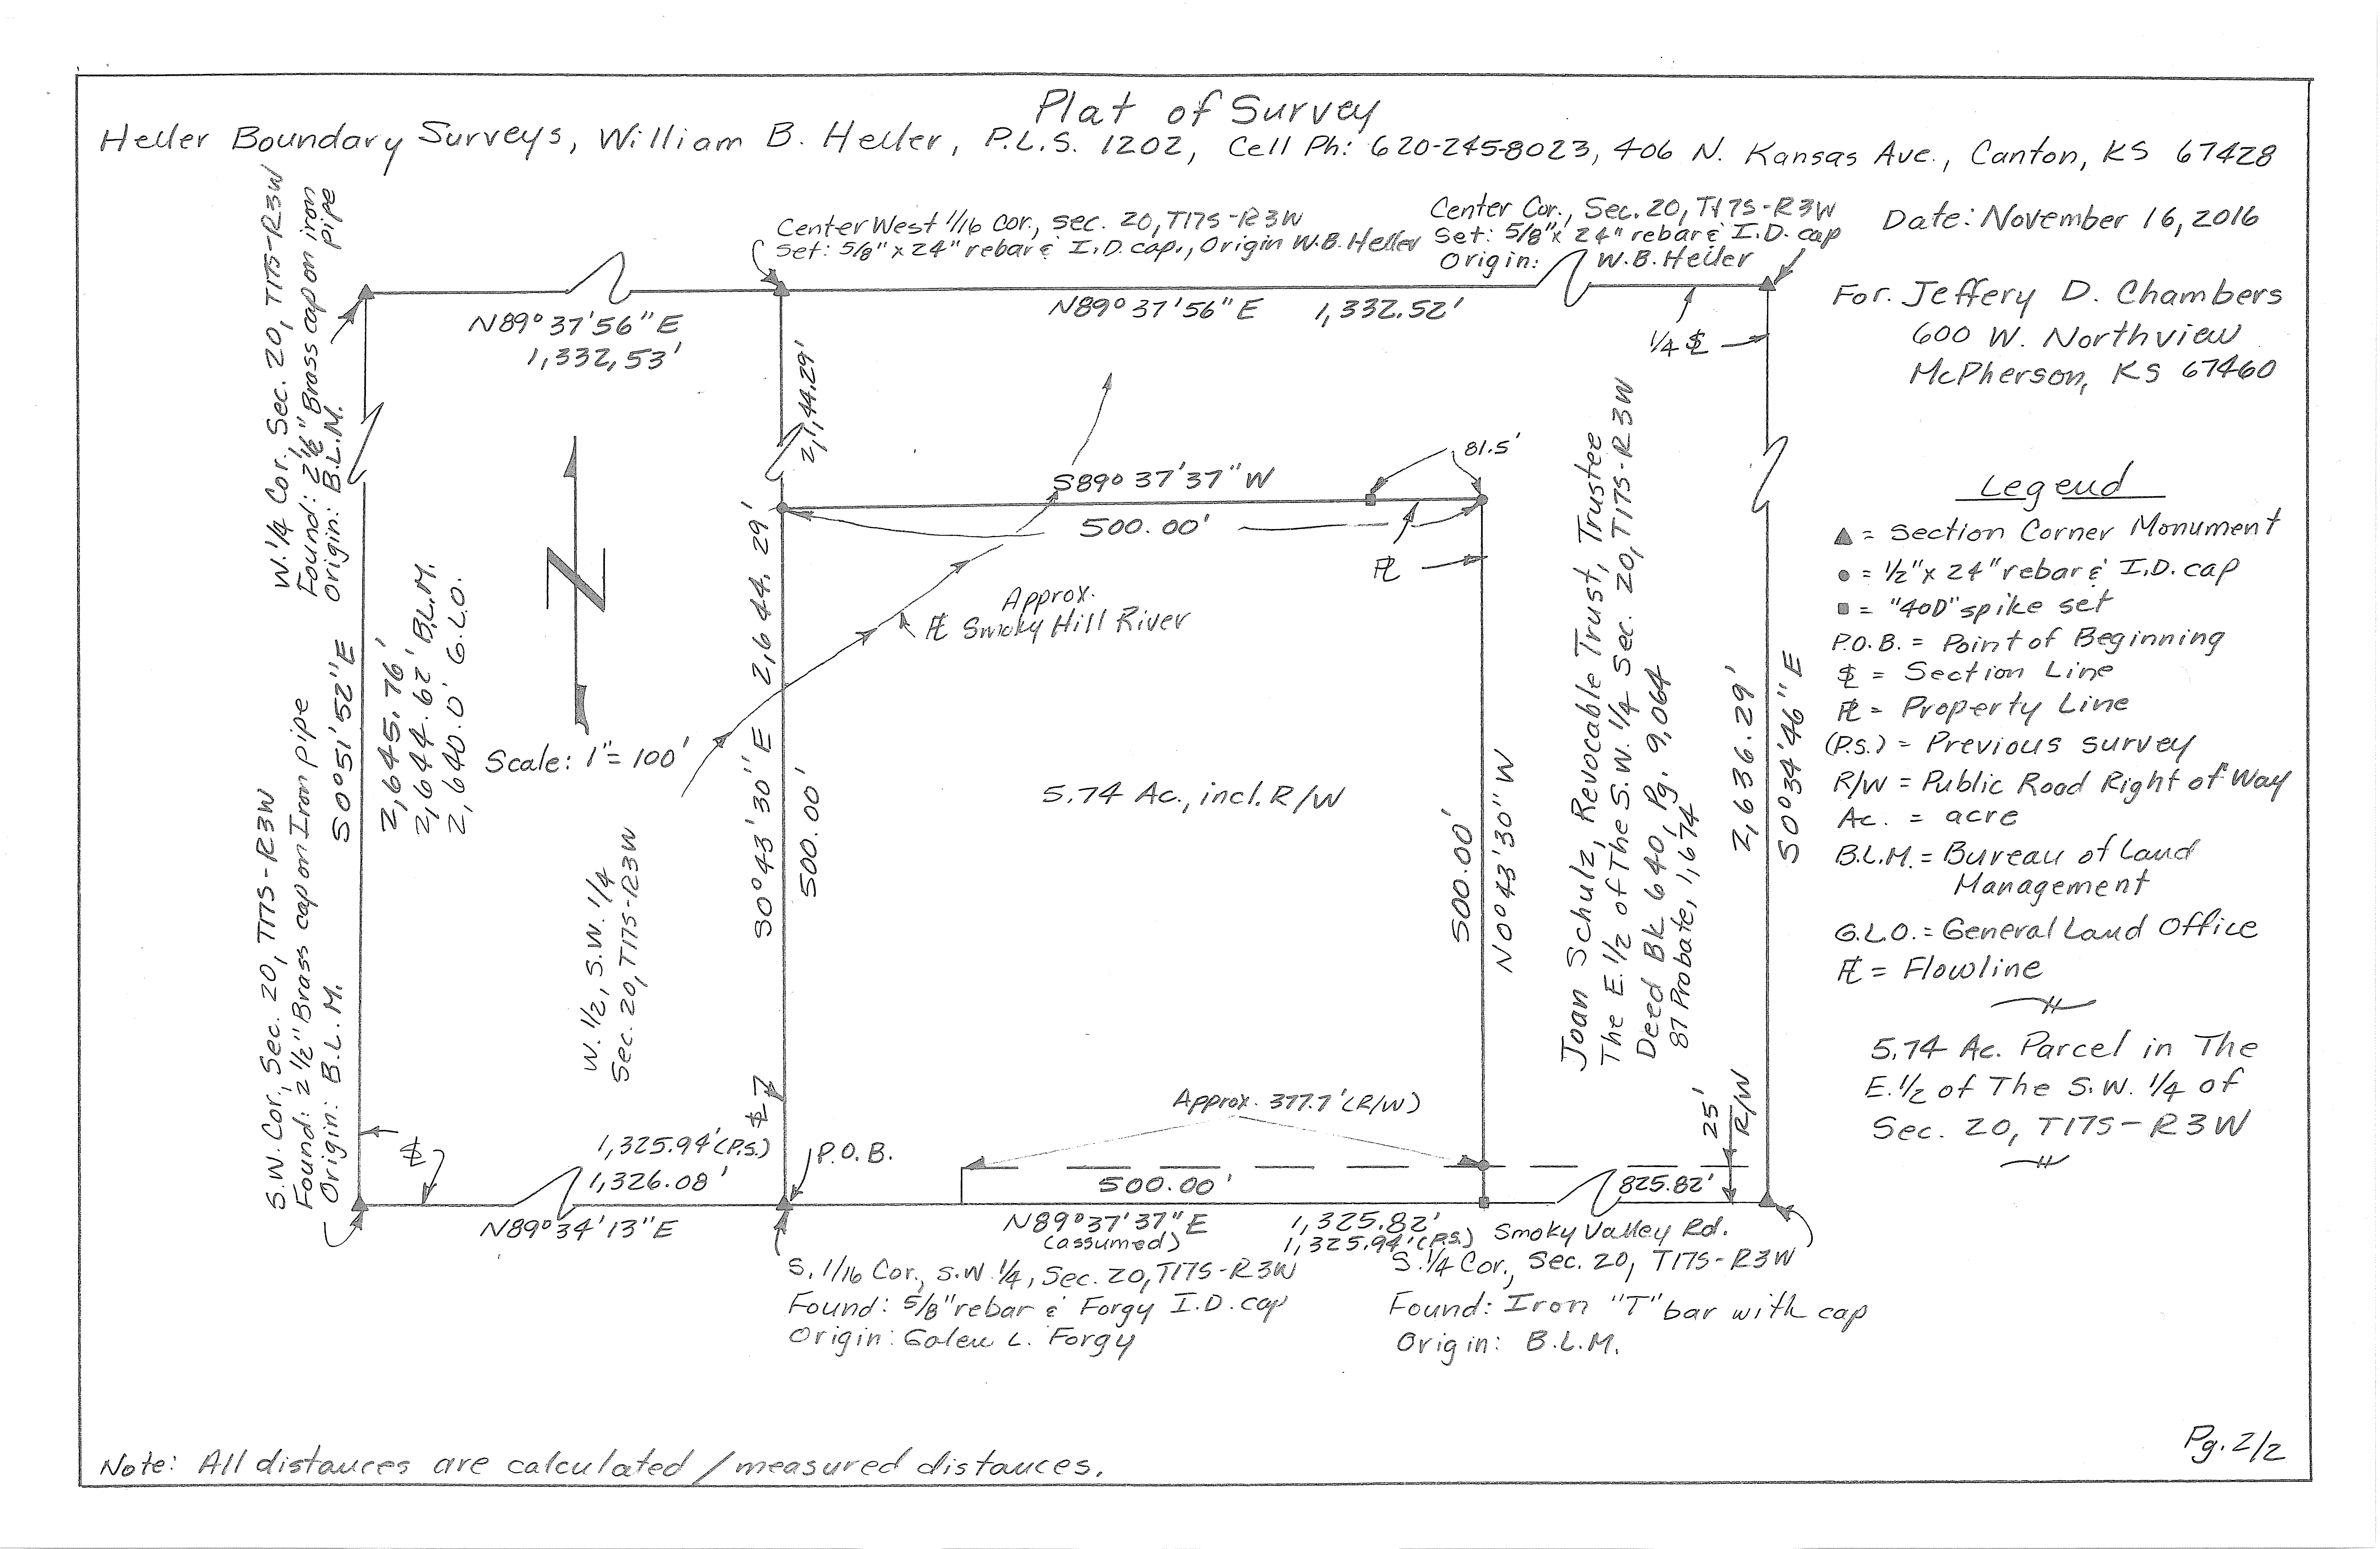 Plat of Survey
Heller Boundary Surveys, William B. Heller, P.L.S. 1202, Cell Ph: 620-245-8023, 406 N. Kansas Ave., Canton, KS 67428
Date: November 16, 2016
For: Jeffery D. Chambers
600 W. Northview
McPherson, KS 67460
W. 1/4 Cor., Sec. 20, T17S-R3W
Found: 2 1/2" Brass cap on iron pipe
Origin: B.L.M.
Center West 1/16 Cor., Sec. 20, T17S-R3W
Set: 5/8" x 24" rebar & I.D. cap., Origin W.B. Heller
Center Cor., Sec. 20, T17S-R3W
Set: 5/8" x 24" rebar & I.D. cap
Origin: W.B. Heller
N89° 37' 56" E
1,332.53'
N89° 37' 56" E 1,332.52'
1/4 SL
2,144.29'
81.5'
S89° 37' 37" W
500.00'
PL
Approx.
FL Smoky Hill River
S0° 51' 52" E
2,645.76'
2,644.62' B.L.M.
2,640.0' G.L.O.
Scale: 1" = 100'
S0° 43' 30" E 2,644.29'
500.00'
5.74 Ac., incl. R/W
500.00'
N0° 43' 30" W
Joan Schulz, Revocable Trust, Trustee
The E. 1/2 of The S.W. 1/4 Sec. 20, T17S-R3W
Deed Bk 640, Pg. 9,064
87 Probate, 1,674
2,636.29'
S0° 34' 46" E
W. 1/2, S.W. 1/4
Sec. 20, T17S-R3W
S.W. Cor., Sec. 20, T17S-R3W
Found: 2 1/2" Brass cap on Iron pipe
Origin: B.L.M.
SL
SL
Approx. 377.7' (R/W)
25'
R/W
1,325.94' (P.S.)
1,326.08'
P.O.B.
500.00'
825.82'
N89° 34' 13" E
N89° 37' 37" E
(assumed)
1,325.82'
1,325.94' (P.S.)
Smoky Valley Rd.
S. 1/16 Cor., S.W. 1/4, Sec. 20, T17S-R3W
Found: 5/8" rebar & Forgy I.D. cap
Origin: Galen L. Forgy
S. 1/4 Cor., Sec. 20, T17S-R3W
Found: Iron "T" bar with cap
Origin: B.L.M.
Legend
▲ = Section Corner Monument
● = 1/2" x 24" rebar & I.D. cap
■ = "40D" spike set
P.O.B. = Point of Beginning
SL = Section Line
PL = Property Line
(P.S.) = Previous survey
R/W = Public Road Right of Way
Ac. = acre
B.L.M. = Bureau of Land
Management
G.L.O. = General Land Office
FL = Flowline
5.74 Ac. Parcel in The
E. 1/2 of The S.W. 1/4 of
Sec. 20, T17S-R3W
Note: All distances are calculated / measured distances.
Pg. 2/2